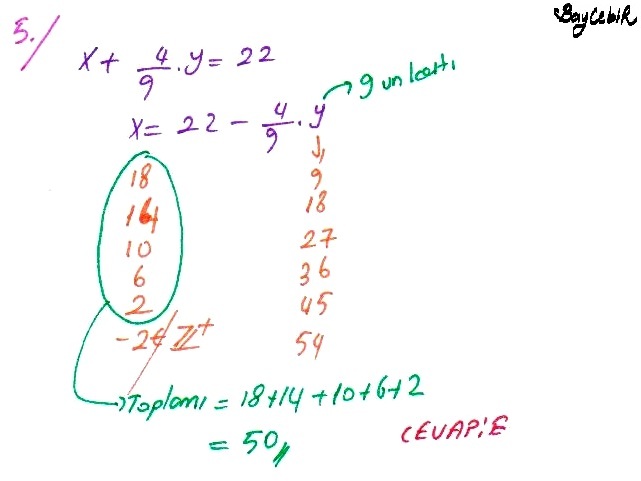 BayCebiR
5./
x + 4/9 . y = 22
x = 22 - 4/9 . y → 9 un katı
18 9
14 18
10 27
6 36
2 45
-2 ∉ Z⁺ 54
→ Toplamı = 18+14+10+6+2
= 50//
CEVAP: E